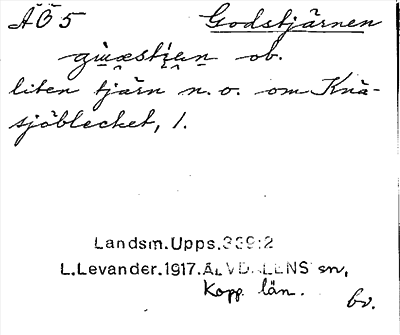 ÄÖ5 Godstjärnen
gu̯æsti̯a̯n̯ ob.
liten tjärn n.o. om Knä-
sjöblecket, 1.
Landsm.Upps.339:2
L.Levander.1917.ÄLVDALENS sn,
Kopp. län.
bv.